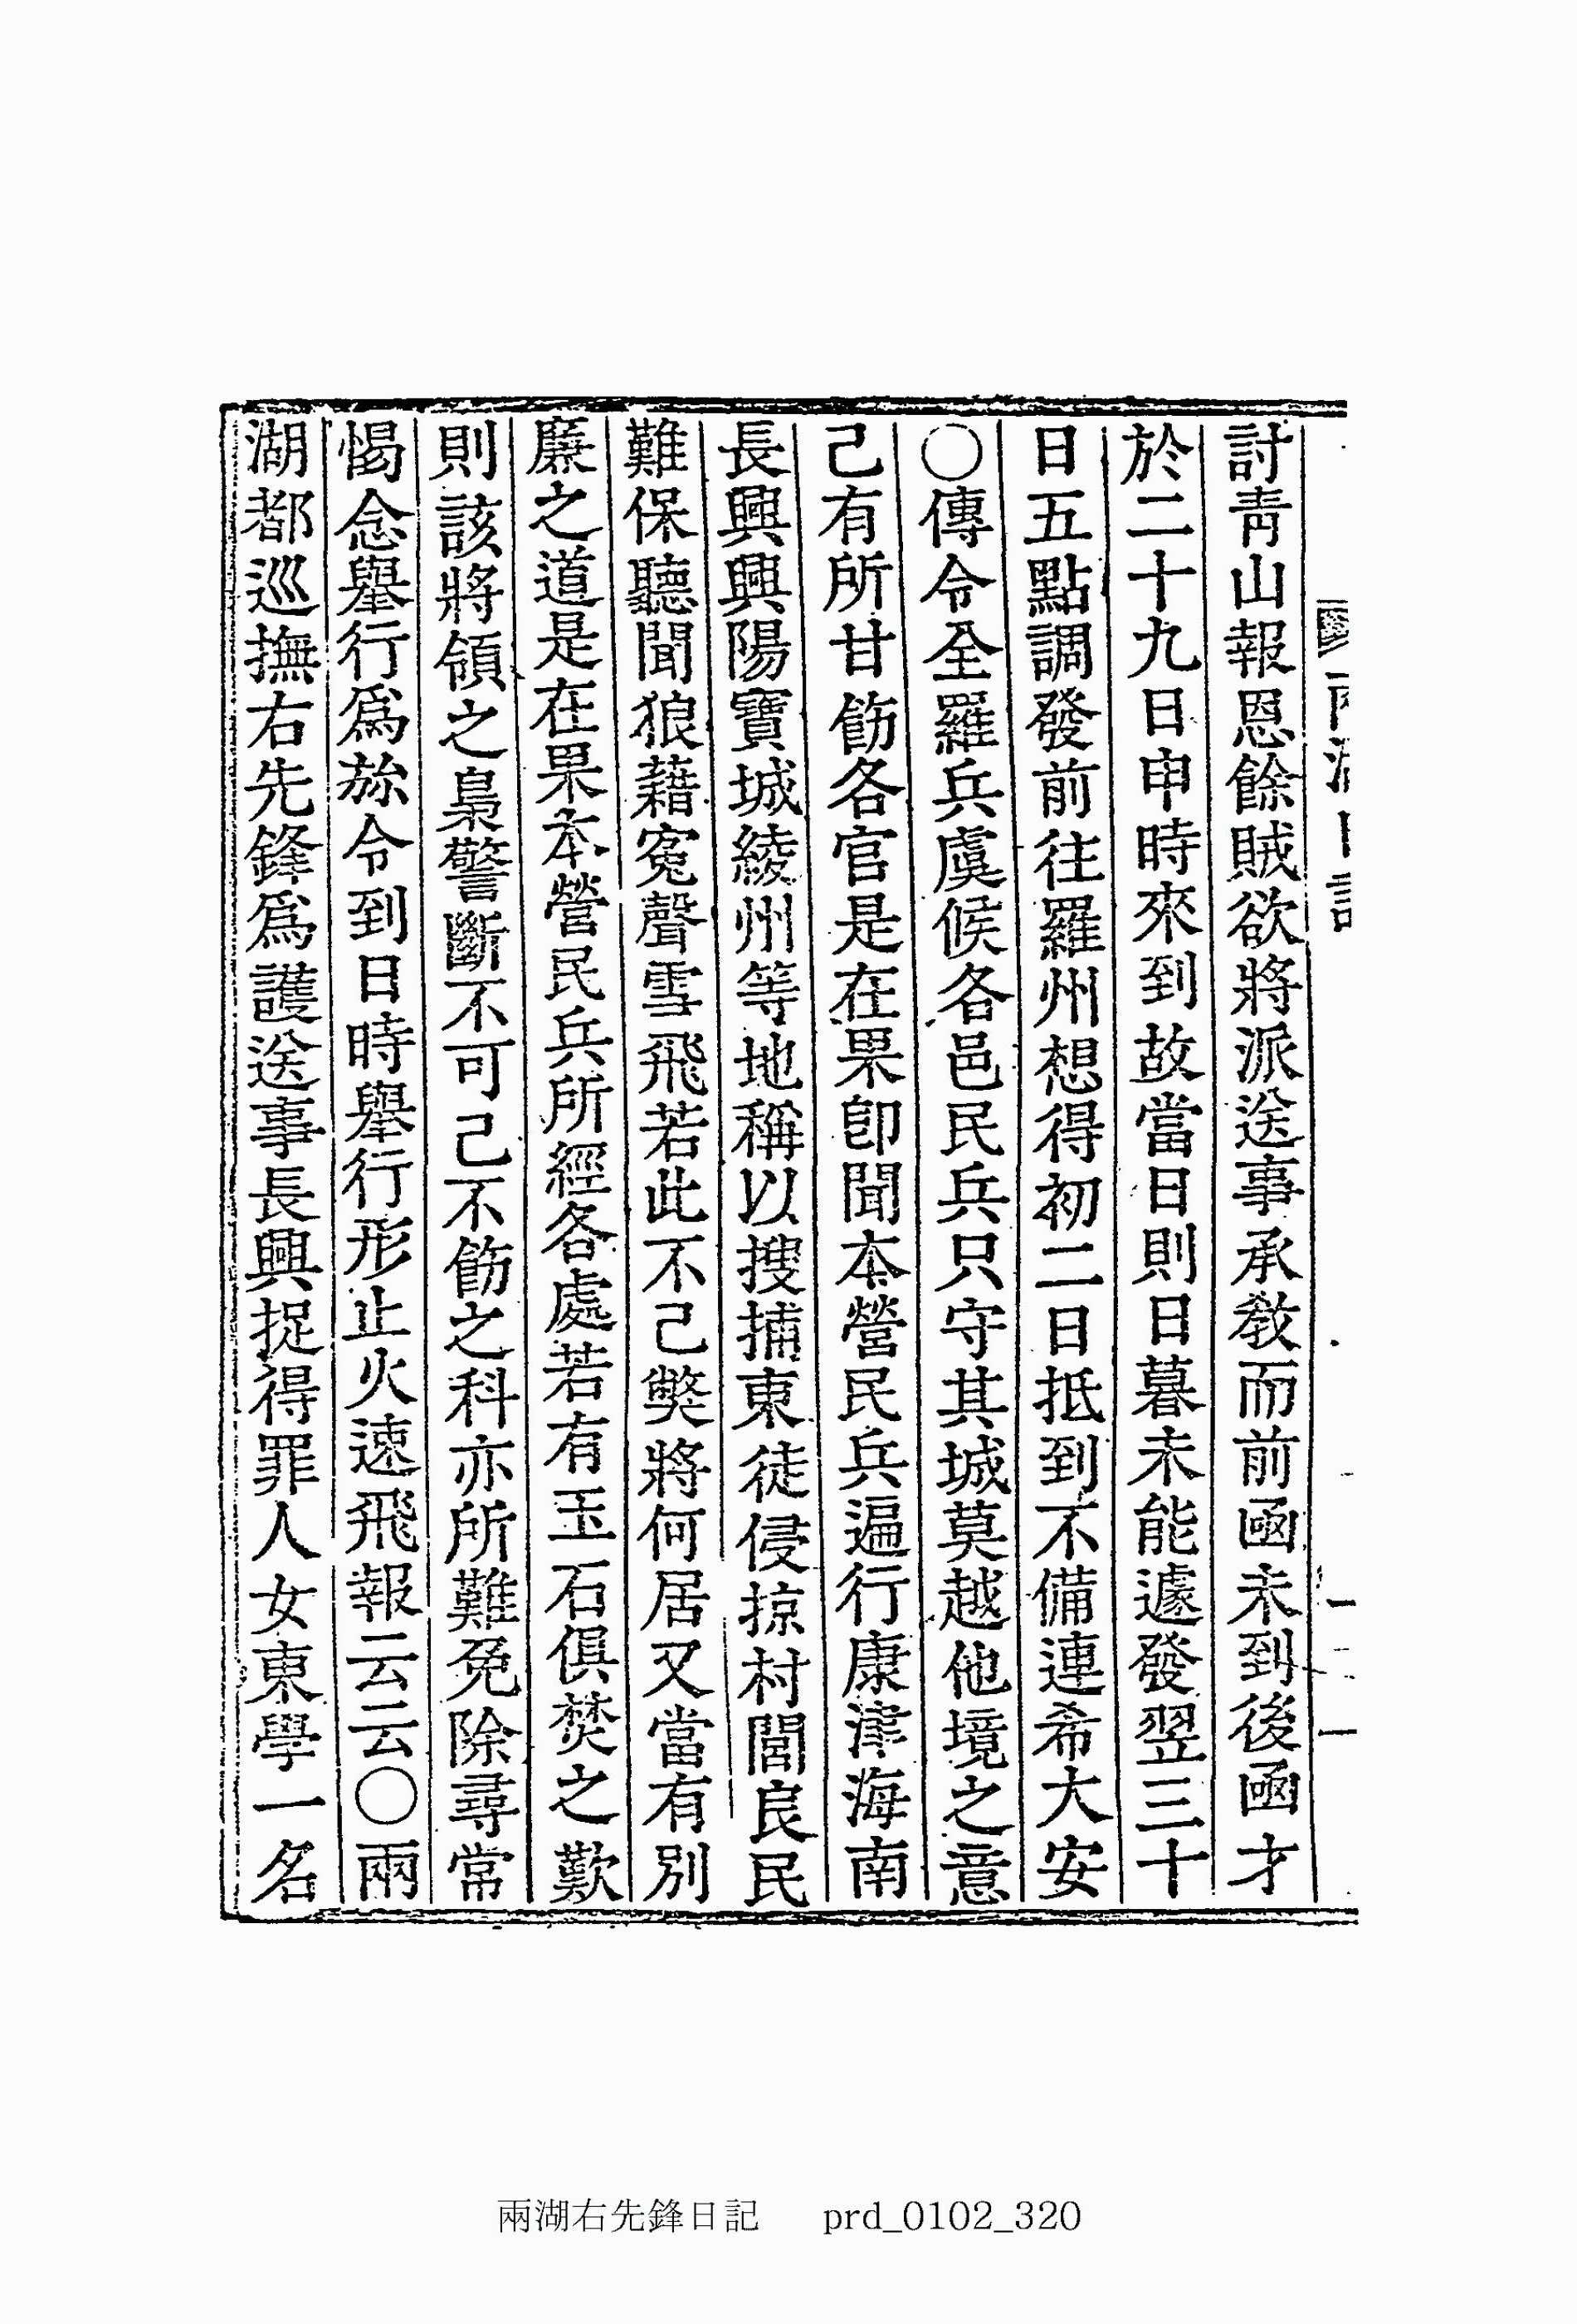 討靑山報恩餘賊欲將派送事承敎而前凾未到後凾才
於二十九日申時來到故當日則日暮未能遽發翌三十
日五點調發前往羅州想得初二日抵到不備連希大安
○傳令全羅兵虞候各邑民兵只守其城莫越他境之意
己有所甘飭各官是在果卽聞本營民兵遍行康津海南
長興興陽寶城綾州等地稱以搜捕東徒侵掠村閭良民
難保聽聞狼藉寃聲雪飛若此不己獘將何居又當有別
廉之道是在果本營民兵所經各處若有玉石俱焚之歎
則該將領之梟警斷不可己不飭之科亦所難免除尋常
惕念擧行爲旀令到日時擧行形止火速飛報云云○兩
湖都巡撫右先鋒爲護送事長興捉得罪人女東學一名
兩湖右先鋒日記 prd_0102_320